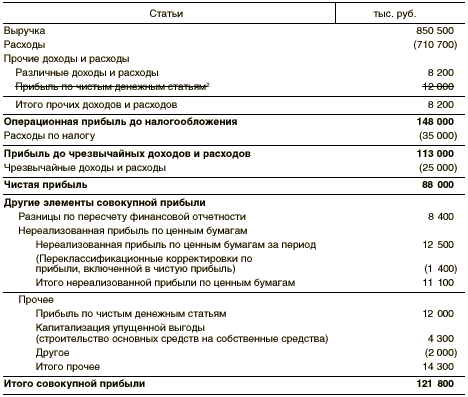 Статьи тыс. руб.
Выручка 850 500
Расходы (710 700)
Прочие доходы и расходы
Различные доходы и расходы 8 200
Прибыль по чистым денежным статьям² 12 000
Итого прочих доходов и расходов 8 200
Операционная прибыль до налогообложения 148 000
Расходы по налогу (35 000)
Прибыль до чрезвычайных доходов и расходов 113 000
Чрезвычайные доходы и расходы (25 000)
Чистая прибыль 88 000
Другие элементы совокупной прибыли
Разницы по пересчету финансовой отчетности 8 400
Нереализованная прибыль по ценным бумагам
Нереализованная прибыль по ценным бумагам за период 12 500
(Переклассификационные корректировки по
прибыли, включенной в чистую прибыль) (1 400)
Итого нереализованной прибыли по ценным бумагам 11 100
Прочее
Прибыль по чистым денежным статьям 12 000
Капитализация упущенной выгоды
(строительство основных средств на собственные средства) 4 300
Другое (2 000)
Итого прочее 14 300
Итого совокупной прибыли 121 800